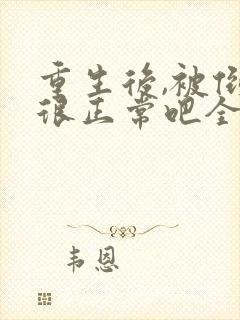 重生後,被
很正常吧全
韦恩